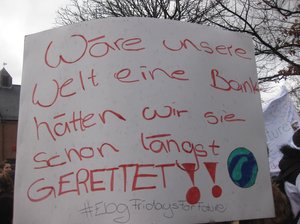 Wäre unsere
Welt eine Bank
hätten wir sie
schon längst
GERETTET!!